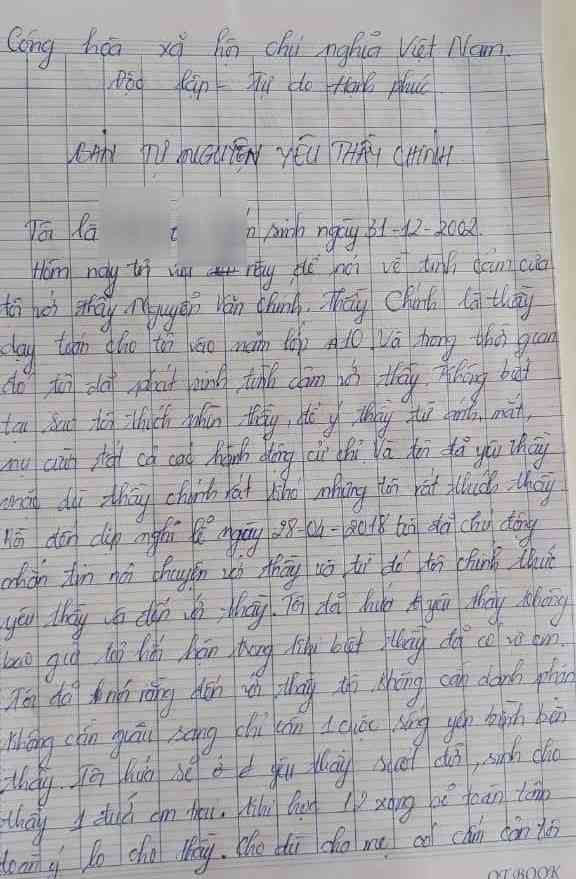 Cộng hòa xã hội chủ nghĩa Việt Nam.
Độc lập - Tự do - Hạnh phúc
BẢN TỰ NGUYỆN YÊU THẦY CHINH
Tôi là sinh ngày 31-12-2002.
Hôm nay tôi này để nói về tình cảm của
tôi với thầy Nguyễn Văn Chinh. Thầy Chinh là thầy
dạy toán cho tôi vào năm lớp A10. Và trong thời gian
đó tôi đã phát sinh tình cảm với thầy. Không biết
tại sao tôi thích nhìn thầy, để ý thầy từ ánh mắt,
nụ cười tất cả các hành động cử chỉ. Và tôi đã yêu thầy
mặc dù thầy chinh rất khó nhưng tôi rất thích thầy
đến dịp nghỉ lễ ngày 28-04-2018 tôi đã chủ động
nhắn tin nói chuyện với thầy và từ đó tôi chính thức
yêu thầy và đến với thầy. Tôi đã hứa yêu thầy không
bao giờ tôi hối hận trong khi biết thầy đã có vợ con.
Tôi đã rằng đến với thầy tôi không cần danh phận
không cần giàu sang chỉ cần 1 cuộc sống yên bình bên
thầy. Tôi hứa sẽ ở yêu thầy suốt đời, sinh cho
thầy 1 đứa con trai. Khi học 12 xong sẽ toàn tâm
toàn ý lo cho thầy. Cho dù cha mẹ có cấm cản tôi
OT BOOK